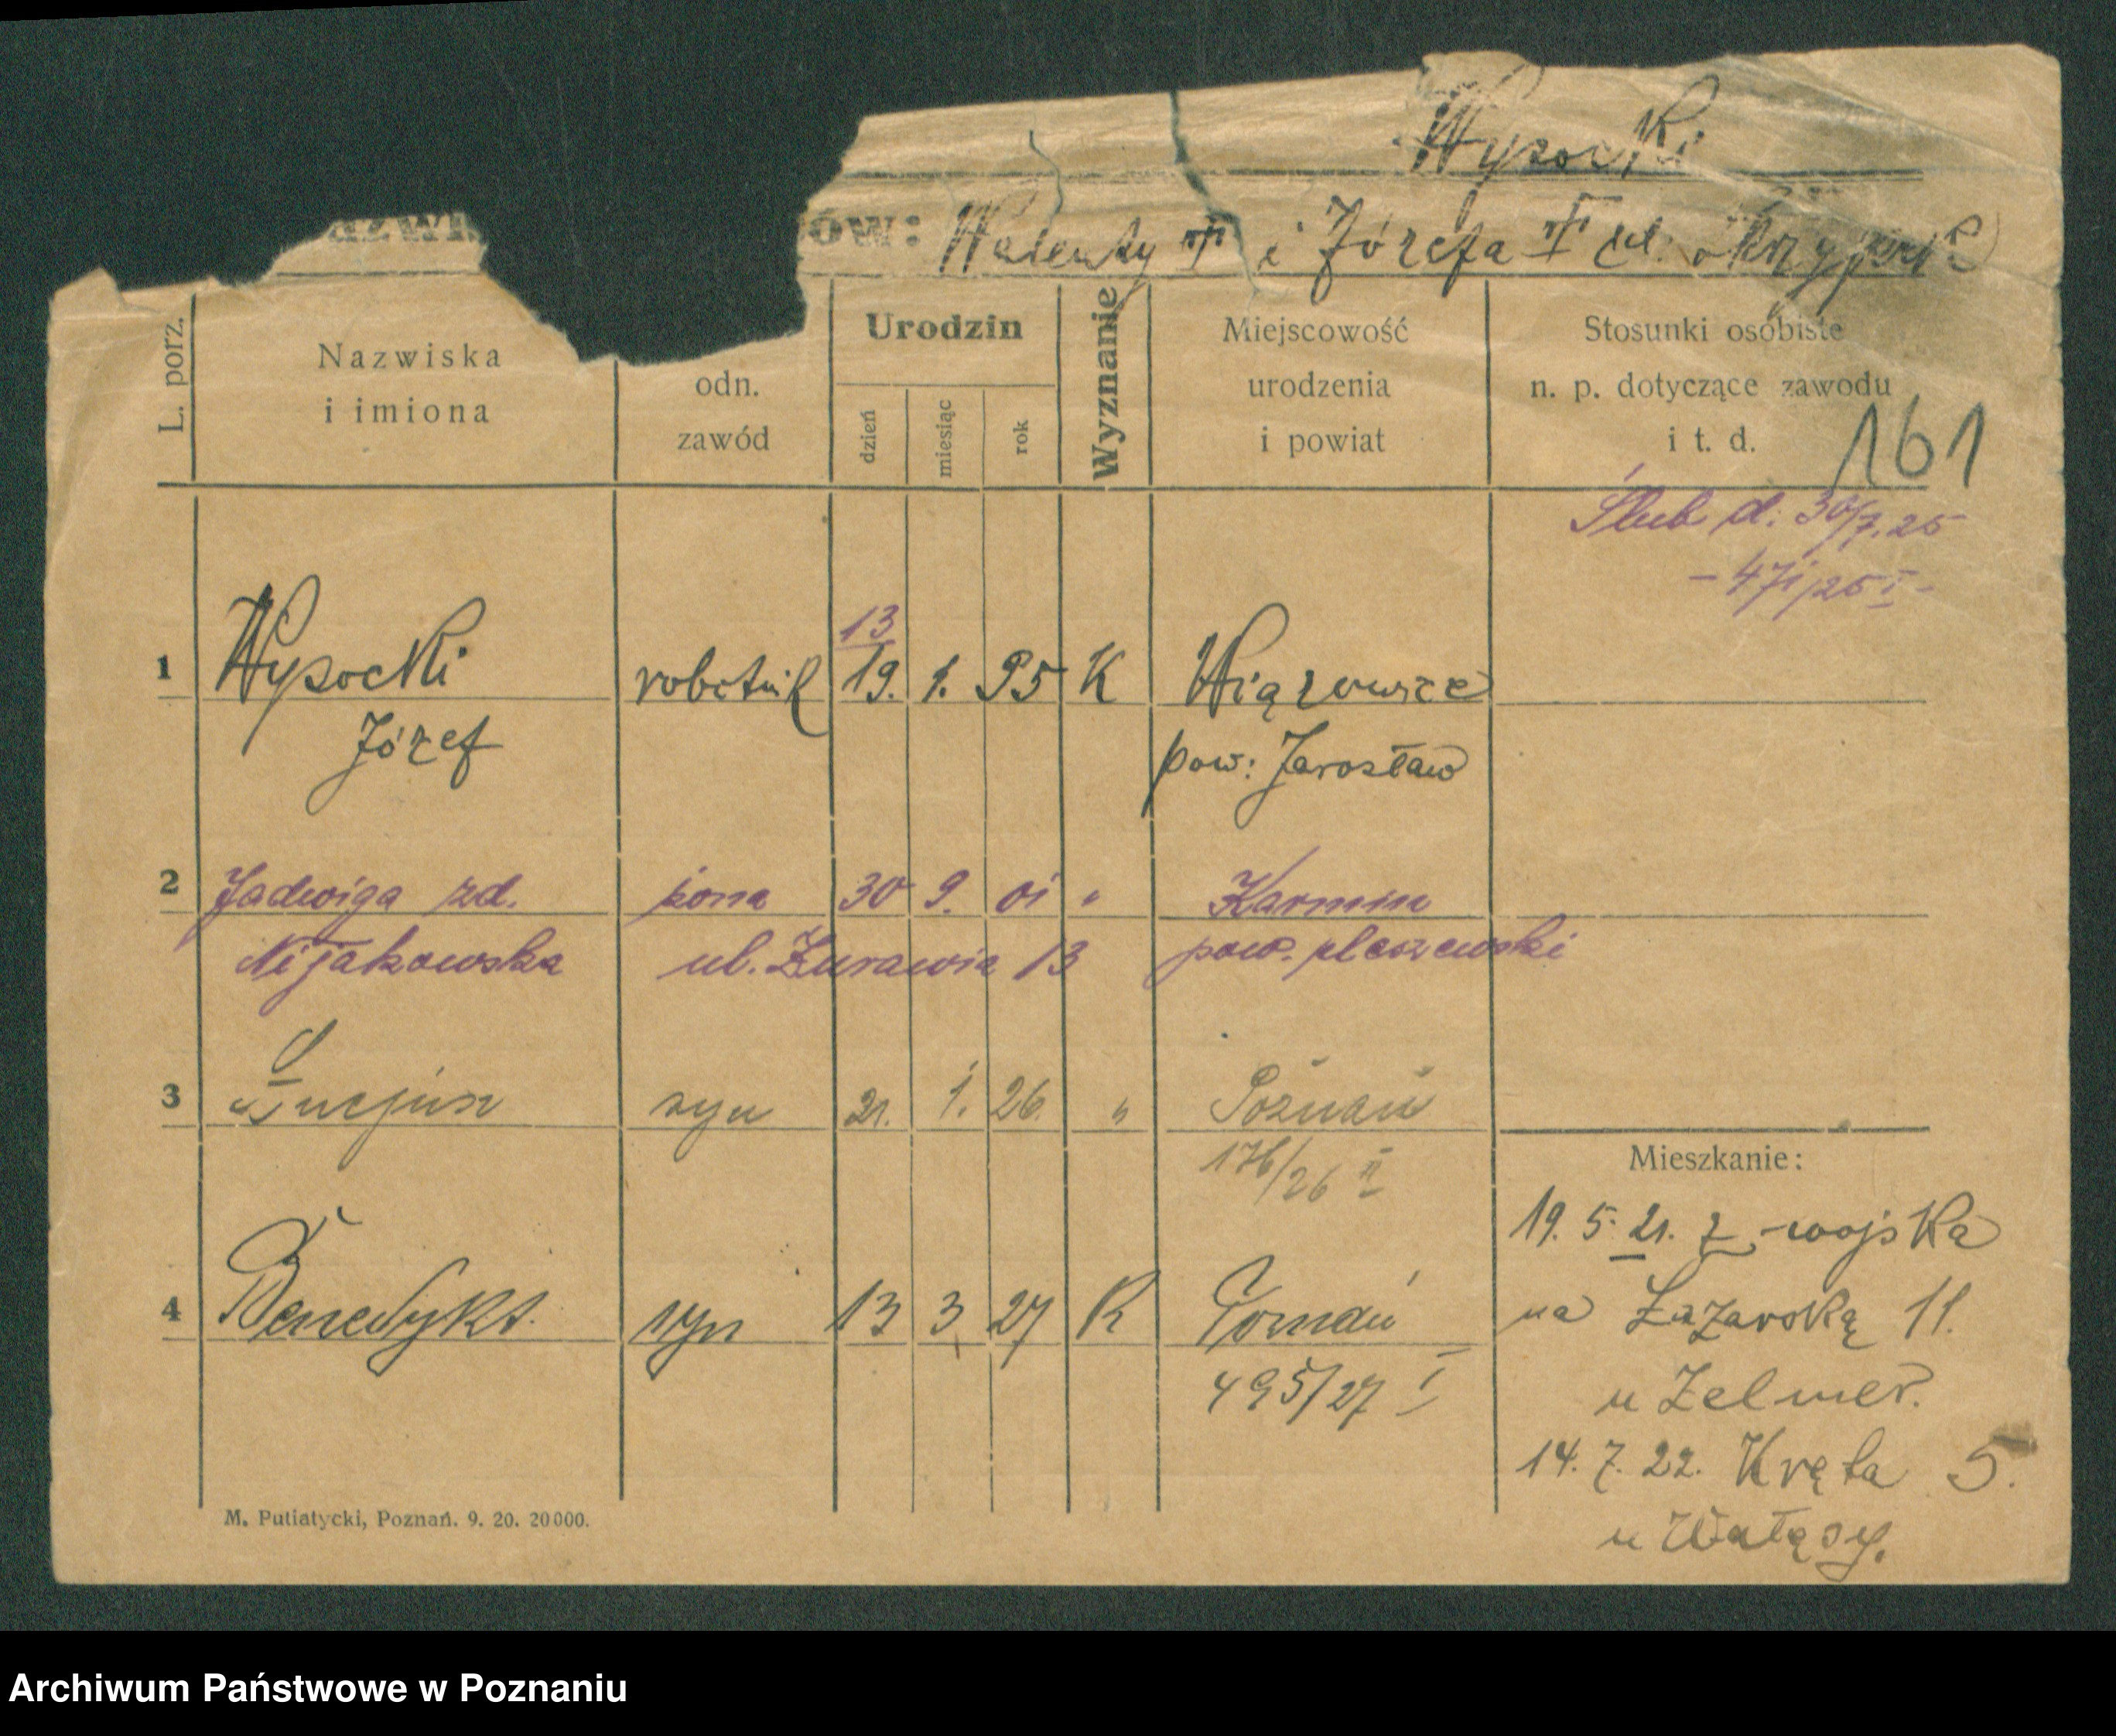 Wysocki
ÓW: Walenty † i Józefa † zd.
L. porz.
Nazwiska
i imiona
odn.
zawód
Urodzin
dzień
miesiąc
rok
Wyznanie
Miejscowość
urodzenia
i powiat
Stosunki osobiste
n. p. dotyczące zawodu
i t. d.
161
Ślub d: 30/7.25
- 471/25 I -
13
1 Wysocki robotnik 19. 1. 95 K Wiązownice
Józef pow: Jarosław
2 Jadwiga zd. żona 30 9. 01 " Karmin
Nijakowska ul. Żurawia 13 pow. pleszewski
3 Lucjan syn 21. 1. 26. " Poznań
176/26 II
4 Benedykt. syn 13 3 27 K Poznań
495/27 I
Mieszkanie:
19. 5. 21. z wojska
na Łazarską 11.
u Zelmer.
14. 7. 22. Kręta 5.
u
M. Putiatycki, Poznań. 9. 20. 20 000.
Archiwum Państwowe w Poznaniu